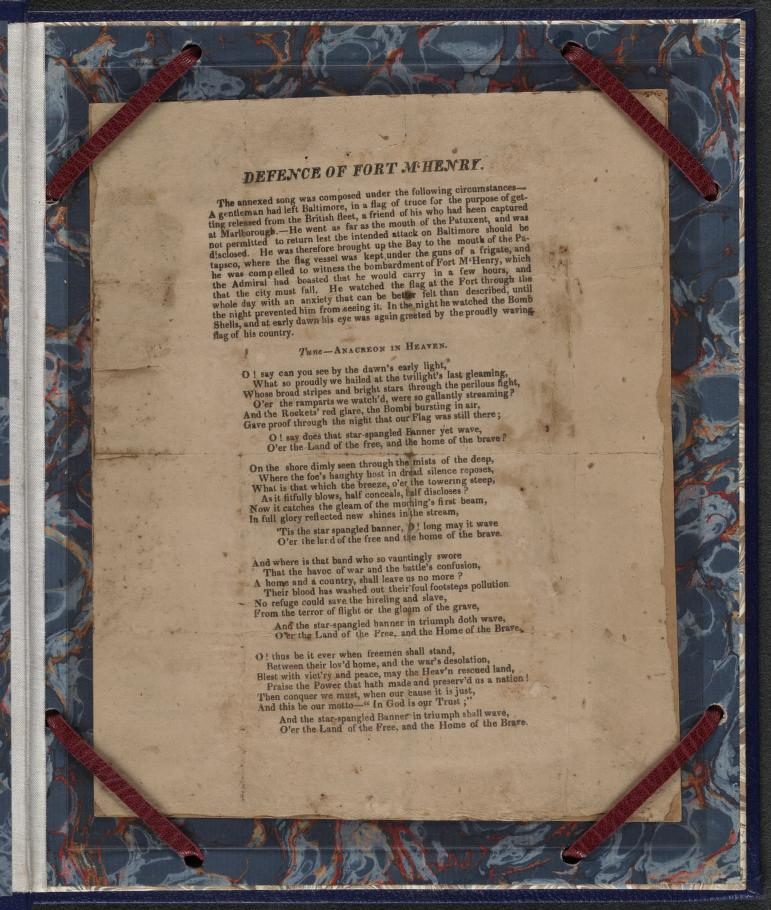 DEFENCE OF FORT M'HENRY.
The annexed song was composed under the following circumstances—
A gentleman had left Baltimore, in a flag of truce for the purpose of get-
ting released from the British fleet, a friend of his who had been captured
at Marlborough.—He went as far as the mouth of the Patuxent, and was
not permitted to return lest the intended attack on Baltimore should be
disclosed. He was therefore brought up the Bay to the mouth of the Pa-
tapsco, where the flag vessel was kept under the guns of a frigate, and
he was compelled to witness the bombardment of Fort M'Henry, which
the Admiral had boasted that he would carry in a few hours, and
that the city must fall. He watched the flag at the Fort through the
whole day with an anxiety that can be better felt than described, until
the night prevented him from seeing it. In the night he watched the Bomb
Shells, and at early dawn his eye was again greeted by the proudly waving
flag of his country.
Tune—ANACREON IN HEAVEN.
O! say can you see by the dawn's early light,
What so proudly we hailed at the twilight's last gleaming,
Whose broad stripes and bright stars through the perilous fight,
O'er the ramparts we watch'd, were so gallantly streaming?
And the Rockets' red glare, the Bombs bursting in air,
Gave proof through the night that our Flag was still there;
O! say does that star-spangled Banner yet wave,
O'er the Land of the free, and the home of the brave?
On the shore dimly seen through the mists of the deep,
Where the foe's haughty host in dread silence reposes,
What is that which the breeze, o'er the towering steep,
As it fitfully blows, half conceals, half discloses?
Now it catches the gleam of the morning's first beam,
In full glory reflected new shines in the stream,
'Tis the star spangled banner, O! long may it wave
O'er the land of the free and the home of the brave.
And where is that band who so vauntingly swore
That the havoc of war and the battle's confusion,
A home and a country, shall leave us no more?
Their blood has washed out their foul footsteps pollution.
No refuge could save the hireling and slave,
From the terror of flight or the gloom of the grave,
And the star-spangled banner in triumph doth wave,
O'er the Land of the Free, and the Home of the Brave.
O! thus be it ever when freemen shall stand,
Between their lov'd home, and the war's desolation,
Blest with vict'ry and peace, may the Heav'n rescued land,
Praise the Power that hath made and preserv'd us a nation!
Then conquer we must, when our cause it is just,
And this be our motto—"In God is our Trust;"
And the star-spangled Banner in triumph shall wave,
O'er the Land of the Free, and the Home of the Brave.